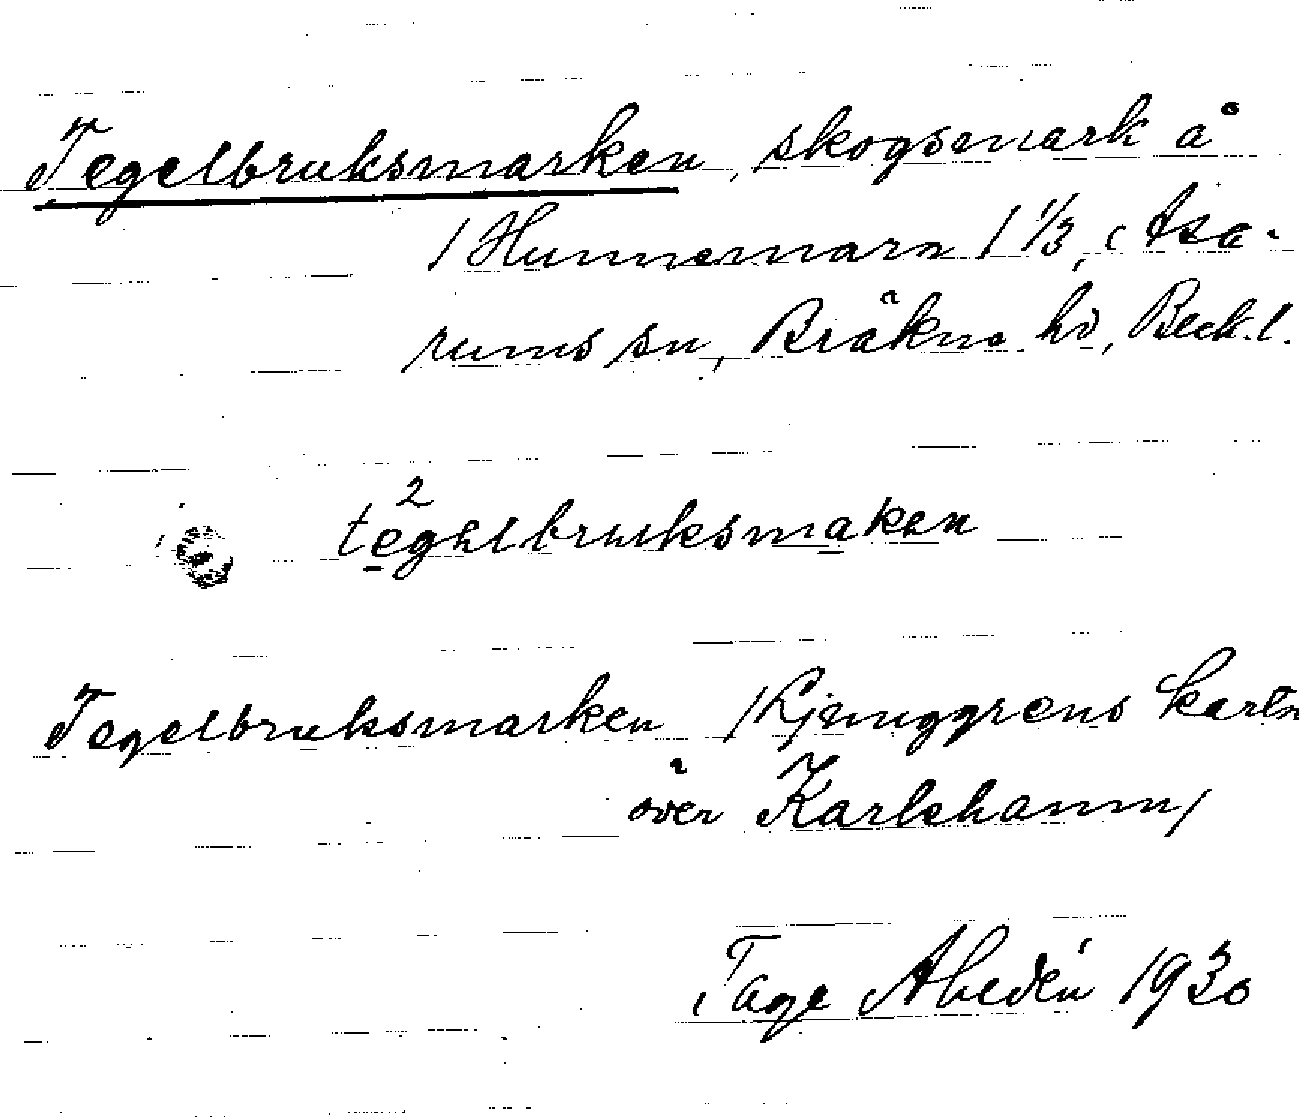 Tegelbruksmarken, skogsmark å
/ Hunnemara 1 1/3, Asa-
rums sn, Bräkne hd, Blek.l.
2
teghlbruksmaken
Tegelbruksmarken /Ljunggrens karta
över Karlshamn/
Tage Ahldén 1930